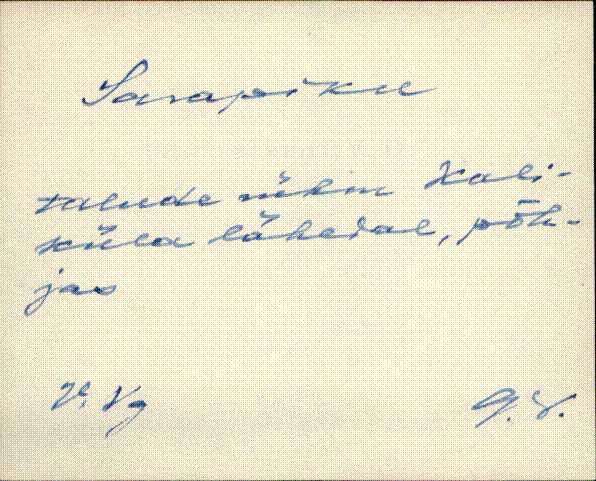 Sarapiku
talude rühm Kali-
küla lähedal, põh-
jas
V. Vg